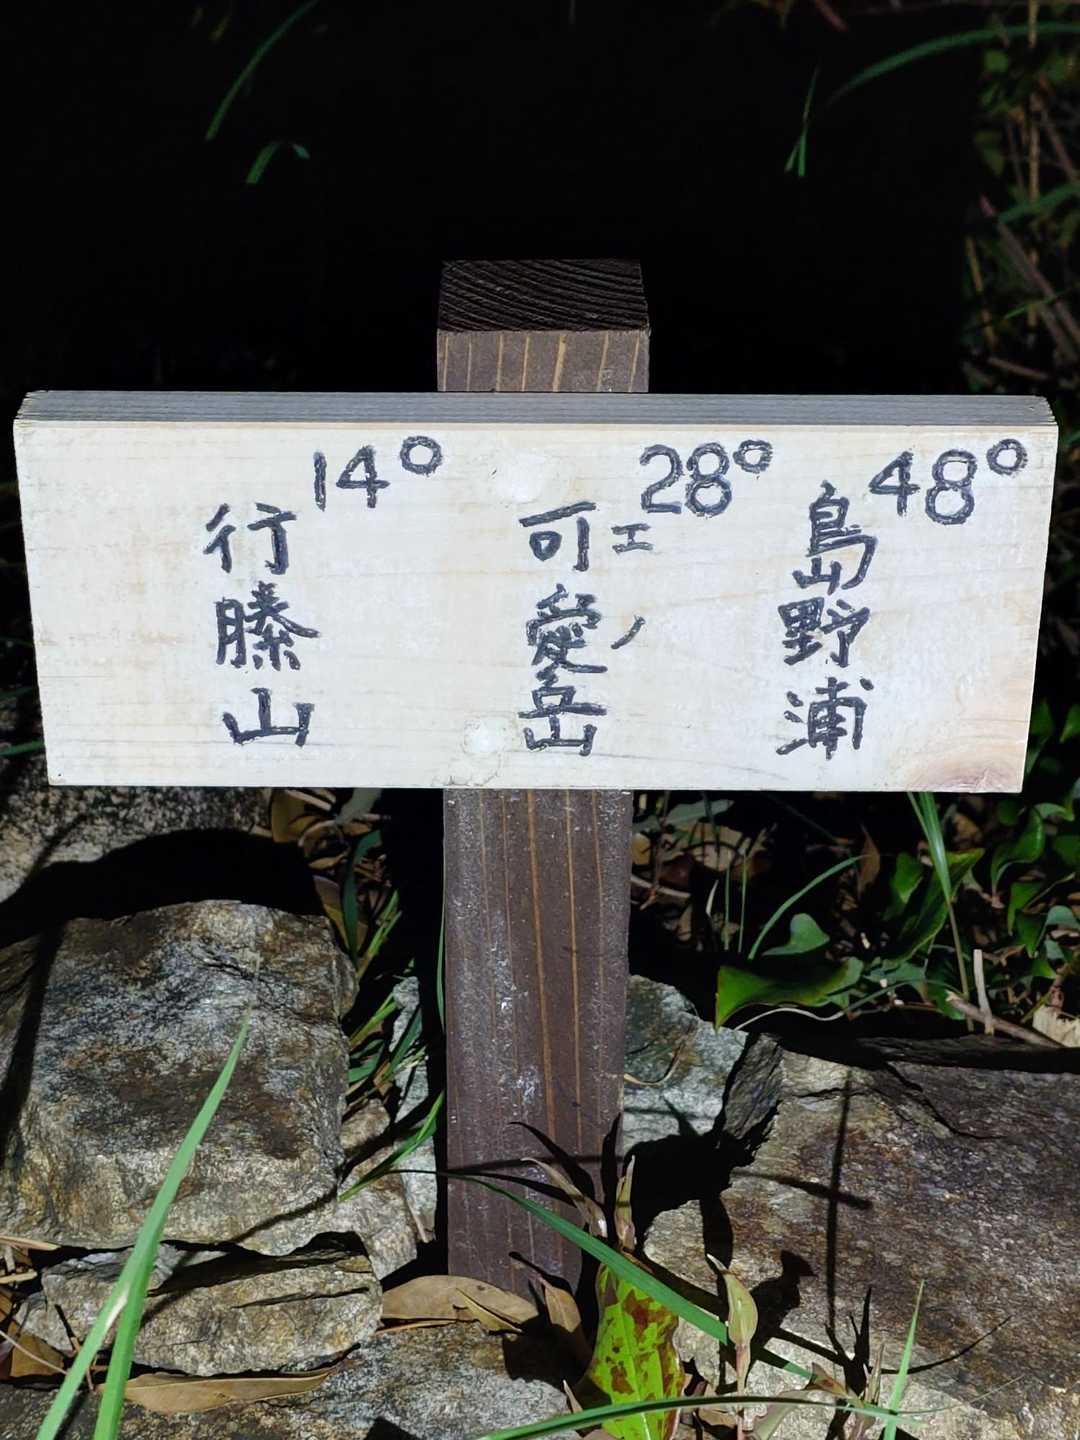 14°
行縢山
28°
可愛岳
エノ
48°
島野浦